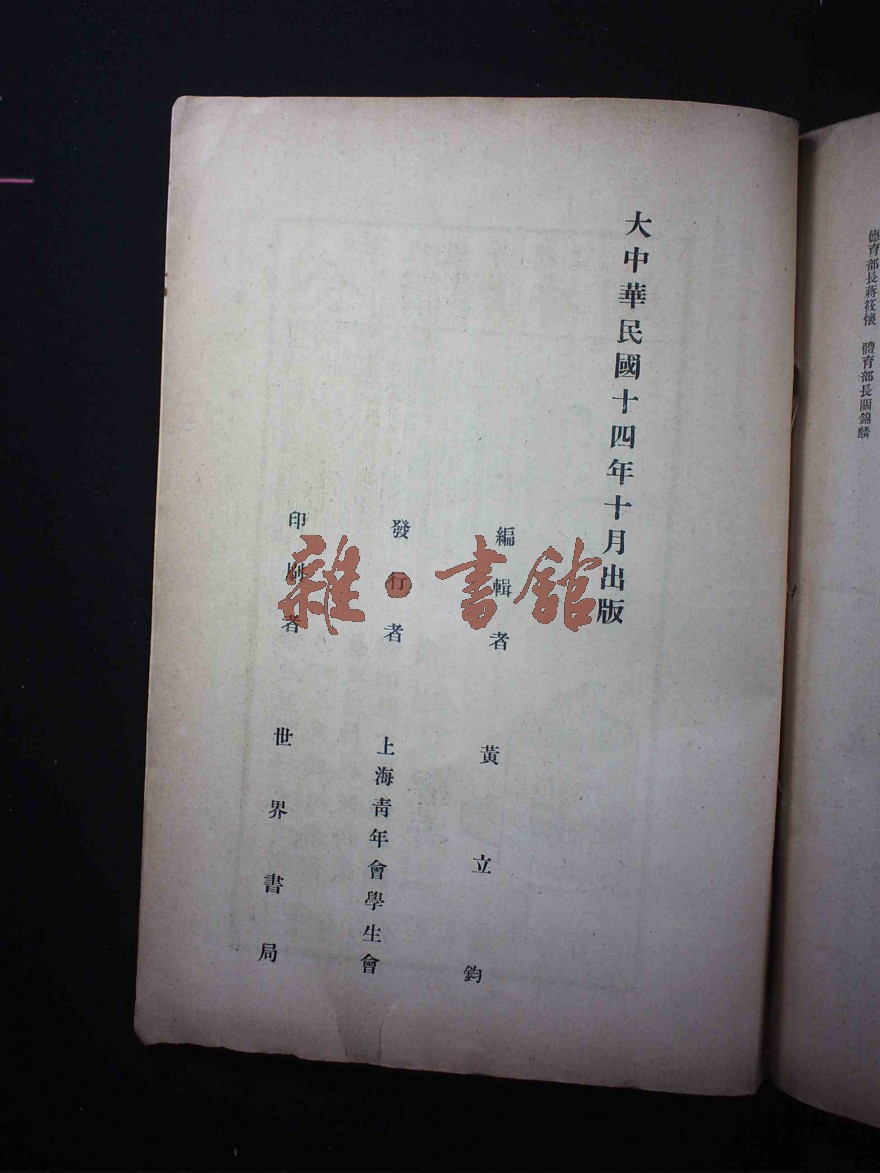 德育部長蔣筱懷　體育部長關錦麟
大中華民國十四年十月出版
編輯者　黃立鈞
發行者　上海青年會學生會
印刷者　世界書局
雜·書館